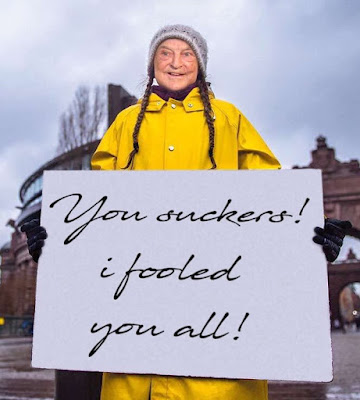 You suckers!
i fooled
you all!